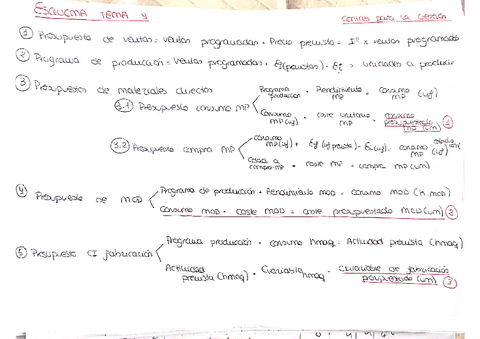 ESQUEMA TEMA 4
Control para la Gestión
1 Presupuesto de ventas = ventas programadas · Precio previsto = Iº x ventas programado
2 Programa de producción = ventas programadas + Ef (previstas) - Ei = unidades a producir
3 Presupuestos de materiales directos
Programa producción · Rendimiento MP = consumo MP (uf)
3.1 Presupuesto consumo MP
Consumo MP (uf) · coste unitario MP = consumo presupuestado MP (um) 1
consumo MP (uf) + Ef (uf previsto) - Ei (uf) = MP (uf)
3.2 Presupuesto compra MP
compra MP · coste MP = compra MP (um)
4 Presupuesto de MOD
Programa de producción · Rendimiento MOD = consumo MOD (h.mod)
Consumo MOD · coste MOD = coste presupuestado MOD (um) 2
5 Presupuesto CI fabricación
Programa producción · consumo hmaq = Actividad prevista (hmaq)
Actividad prevista (hmaq) · Cvariable hmaq = Cvariable de fabricación presupuestado (um) 3